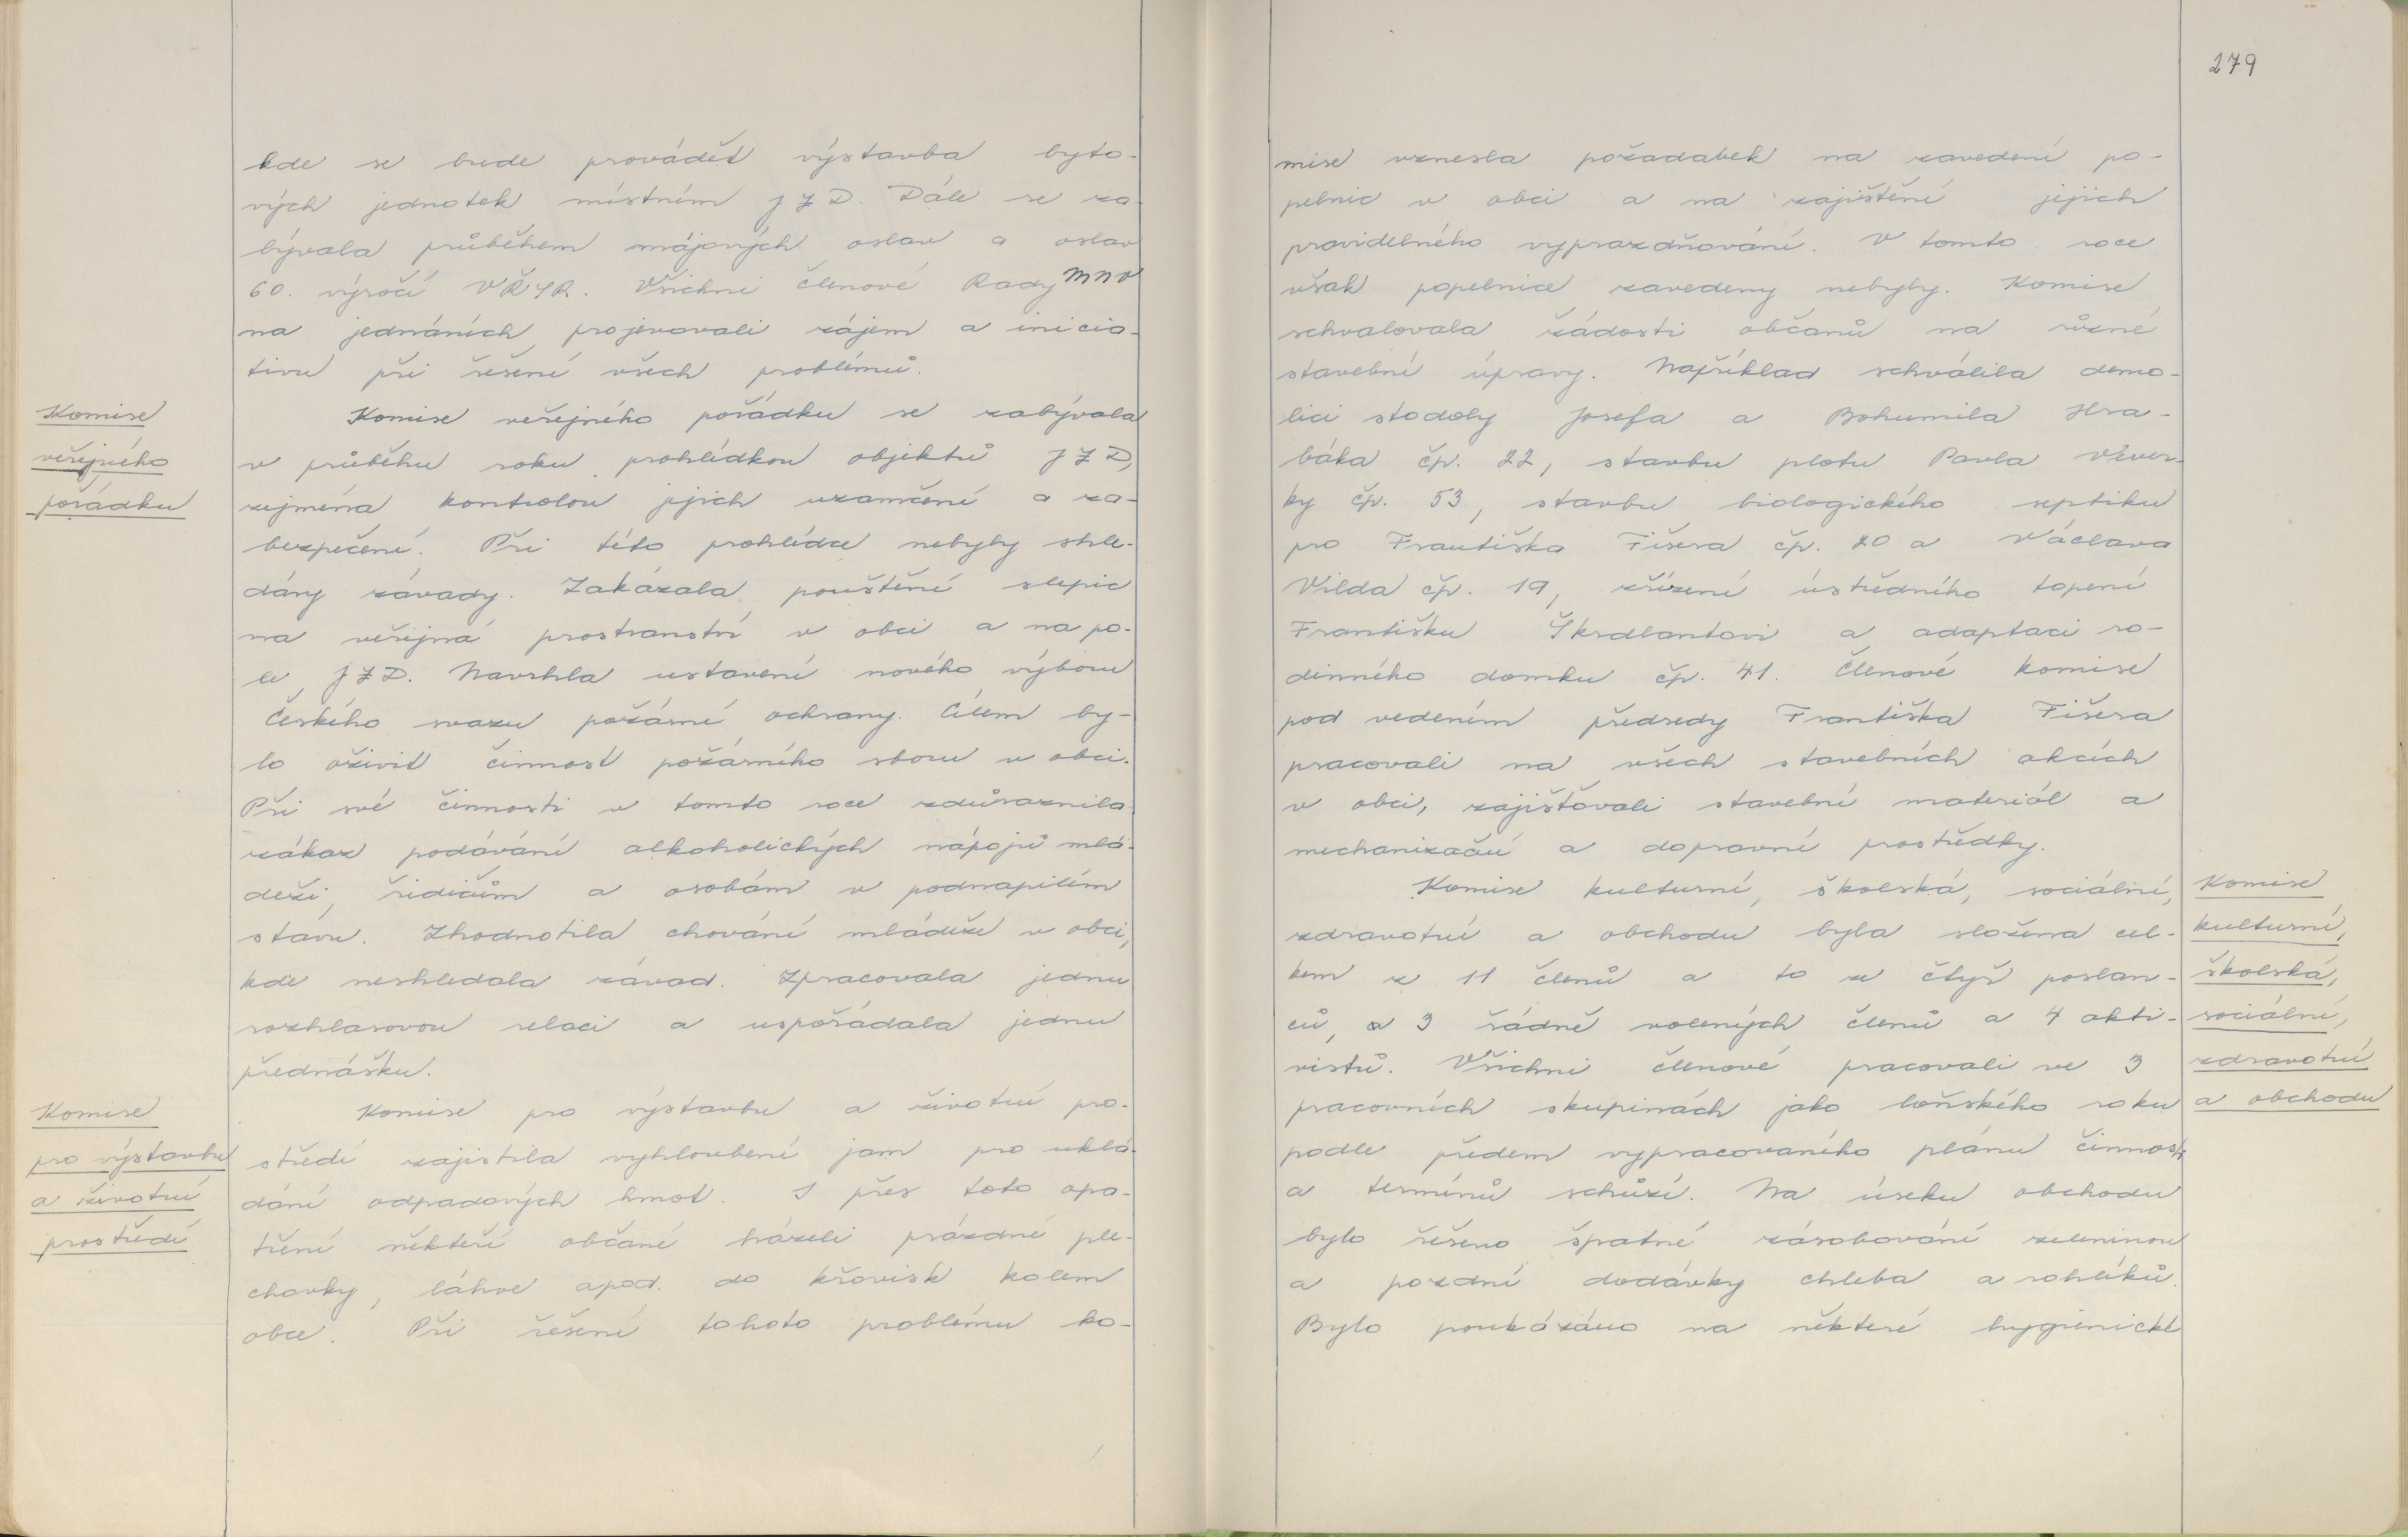 kde se bude provádět výstavba byto-
vých jednotek místním JZD. Dále se za-
bývala průběhem májových oslav a oslav
60. výročí VŘSR. Všichni členové Rady MNV
na jednáních projevovali zájem a inicia-
tivu při řešení všech problémů.
Komise
veřejného
pořádku
Komise veřejného pořádku se zabývala
v průběhu roku prohlídkou objektů JZD,
zejména kontrolou jejich uzamčení a za-
bezpečení. Při této prohlídce nebyly shle-
dány závady. Zakázala pouštění slepic
na veřejná prostranství v obci a na po-
le JZD. Navrhla ustavení nového výboru
Českého svazu požární ochrany. Cílem by-
lo oživit činnost požárního sboru v obci.
Při své činnosti v tomto roce zdůraznila
zákaz podávání alkoholických nápojů mlá-
deži, řidičům a osobám v podnapilém
stavu. Zhodnotila chování mládeže v obci,
kde neshledala závad. Zpracovala jednu
rozhlasovou relaci a uspořádala jednu
přednášku.
Komise
pro výstavbu
a životní
prostředí
Komise pro výstavbu a životní pro-
středí zajistila vyhloubení jam pro uklá-
dání odpadových hmot. I přes toto opa-
tření někteří občané házeli prázdné ple-
chovky, láhve apod. do křovisk kolem
obce. Při řešení tohoto problému ko-
279
mise vznesla požadabek na zavedení po-
pelnic v obci a na zajištění jejich
pravidelného vyprazdňování. V tomto roce
však popelnice zavedeny nebyly. Komise
schvalovala žádosti občanů na různé
stavební úpravy. Například schválila demo-
lici stodoly Josefa a Bohumila Hra-
báka čp. 22, stavbu plotu Pavla Vever-
ky čp. 53, stavbu biologického septiku
pro Františka Fišera čp. 20 a Václava
Vilda čp. 19, zřízení ústředního topení
Františku Škrdlantovi a adaptaci ro-
dinného domku čp. 41. Členové komise
pod vedením předsedy Františka Fišera
pracovali na všech stavebních akcích
v obci, zajišťovali stavební materiál a
mechanizační a dopravní prostředky.
Komise kulturní, školská, sociální,
zdravotní a obchodu byla složena cel-
kem z 11 členů a to ze čtyř poslan-
ců, a 3 řádně volených členů a 4 akti-
vistů. Všichni členové pracovali ve 3
pracovních skupinách jako loňského roku
podle předem vypracovaného plánu činnosti
a termínů schůzí. Na úseku obchodu
bylo řešeno špatné zásobování zeleninou
a pozdní dodávky chleba a rohlíků.
Bylo poukázáno na některé hygienické
Komise
kulturní,
školská,
sociální,
zdravotní
a obchodu